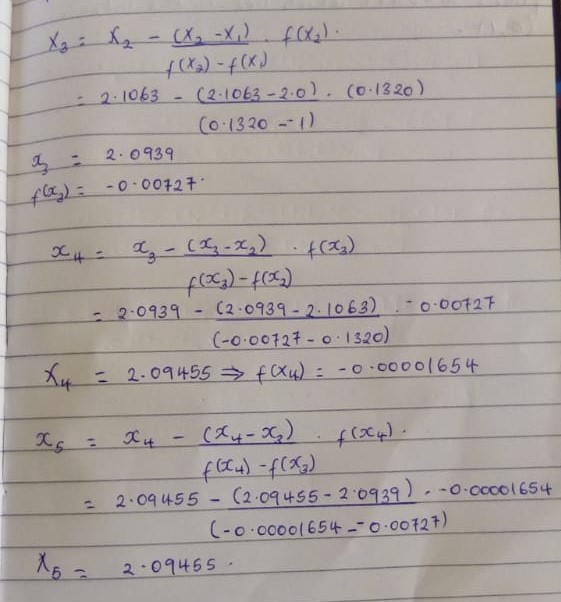 x₃ = x₂ - (x₂ - x₁) . f(x₂).
f(x₂) - f(x₁)
= 2.1063 - (2.1063 - 2.0) . (0.1320)
(0.1320 - -1)
x₃ = 2.0939
f(x₃) = -0.00727.
x₄ = x₃ - (x₃ - x₂) . f(x₃)
f(x₃) - f(x₂)
= 2.0939 - (2.0939 - 2.1063) . -0.00727
(-0.00727 - 0.1320)
x₄ = 2.09455 ⇒ f(x₄) = -0.00001654
x₅ = x₄ - (x₄ - x₃) . f(x₄).
f(x₄) - f(x₃)
= 2.09455 - (2.09455 - 2.0939) . -0.00001654
(-0.00001654 - -0.00727)
x₅ = 2.09455.